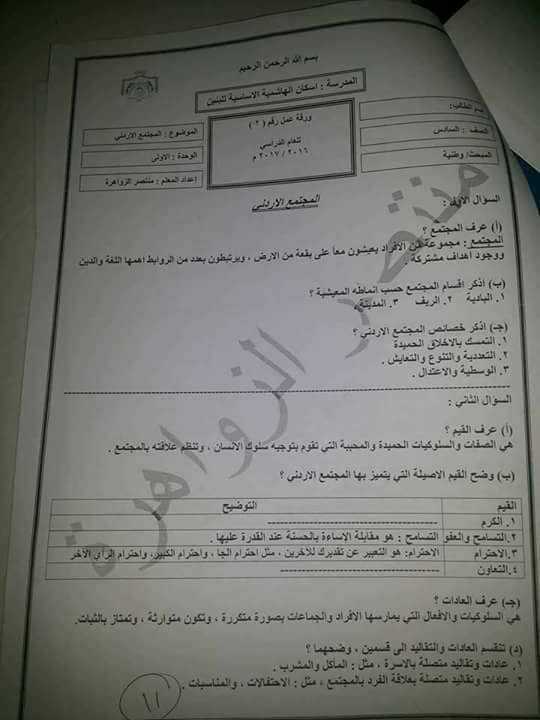 بسم الله الرحمن الرحيم
المدرسة : اسكان الهاشمية الاساسية للبنين
اسم الطالب:
ورقة عمل رقم ( ٢ )
الموضوع : المجتمع الاردني
الصف : السادس
للعام الدراسي
الوحدة : الاولى
المبحث/ وطنية
٢٠١٦ / ٢٠١٧ م
إعداد المعلم : منتصر الزواهرة
المجتمع الاردني
السؤال الاول :
(أ) عرف المجتمع ؟
المجتمع : مجموعة من الأفراد يعيشون معاً على بقعة من الارض ، ويرتبطون بعدد من الروابط اهمها اللغة والدين
ووجود اهداف مشتركة .
(ب) اذكر اقسام المجتمع حسب انماطه المعيشية ؟
١. البادية ٢. الريف ٣. المدينة .
(جـ) اذكر خصائص المجتمع الاردني ؟
١. التمسك بالاخلاق الحميدة
٢. التعددية والتنوع والتعايش .
٣. الوسطية والاعتدال .
السؤال الثاني :
(أ) عرف القيم ؟
هي الصفات والسلوكيات الحميدة والمحببة التي تقوم بتوجيه سلوك الانسان ، وتنظم علاقته بالمجتمع .
(ب) وضح القيم الاصيلة التي يتميز بها المجتمع الاردني ؟
القيم التوضيح
١. الكرم
٢.التسامح والعفو التسامح : هو مقابلة الإساءة بالحسنة عند القدرة عليها .
٣.الاحترام الاحترام: هو التعبير عن تقديرك للأخرين ، مثل احترام الجا ، واحترام الكبير، واحترام الرأي الأخر
٤.التعاون
(جـ) عرف العادات ؟
هي السلوكيات والافعال التي يمارسها الافراد والجماعات بصورة متكررة ، وتكون متوارثة ، وتمتاز بالثبات.
(د) تنقسم العادات والتقاليد الى قسمين ، وضحهما ؟
١. عادات وتقاليد متصلة بالاسرة ، مثل : المأكل والمشرب .
٢. عادات وتقاليد متصلة بعلاقة الفرد بالمجتمع ، مثل : الاحتفالات ، والمناسبات .
١١
منتصر الزواهرة